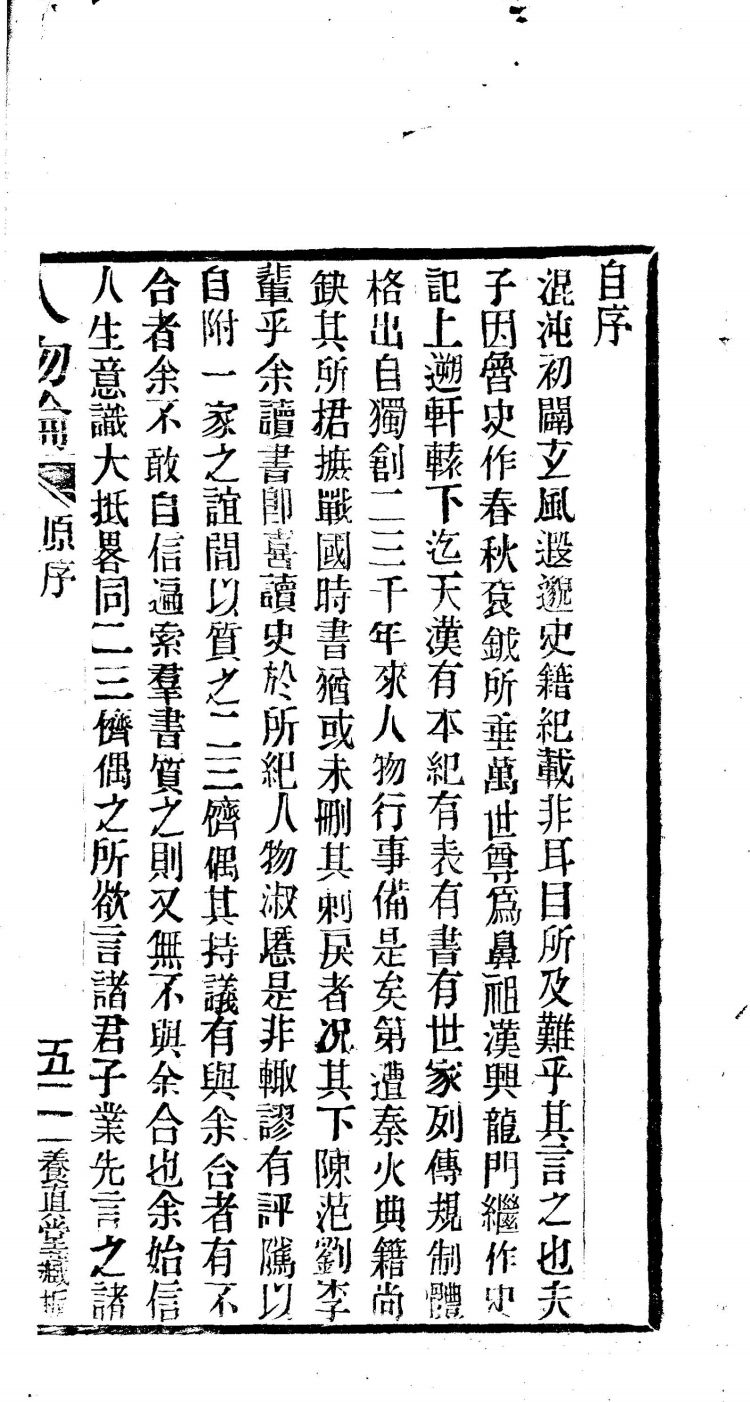 自序
混沌初闢玄風遐邈史籍紀載非耳目所及難乎其言之也夫
子因魯史作春秋袞鉞所垂萬世尊爲鼻祖漢興龍門繼作史
記上遡軒轅下迄天漢有本紀有表有書有世家列傳規制體
格出自獨創二三千年來人物行事備是矣第遭秦火典籍尚
缺其所捃摭戰國時書猶或未刪其剌戾者况其下陳范劉李
輩乎余讀書卽喜讀史於所紀人物淑慝是非輙謬有評隲以
自附一家之誼間以質之二三儕偶其持議有與余合者有不
合者余不敢自信遍索羣書質之則又無不與余合也余始信
人生意識大抵畧同二三儕偶之所欲言諸君子業先言之諸
人物論 原序 五 養直堂藏板